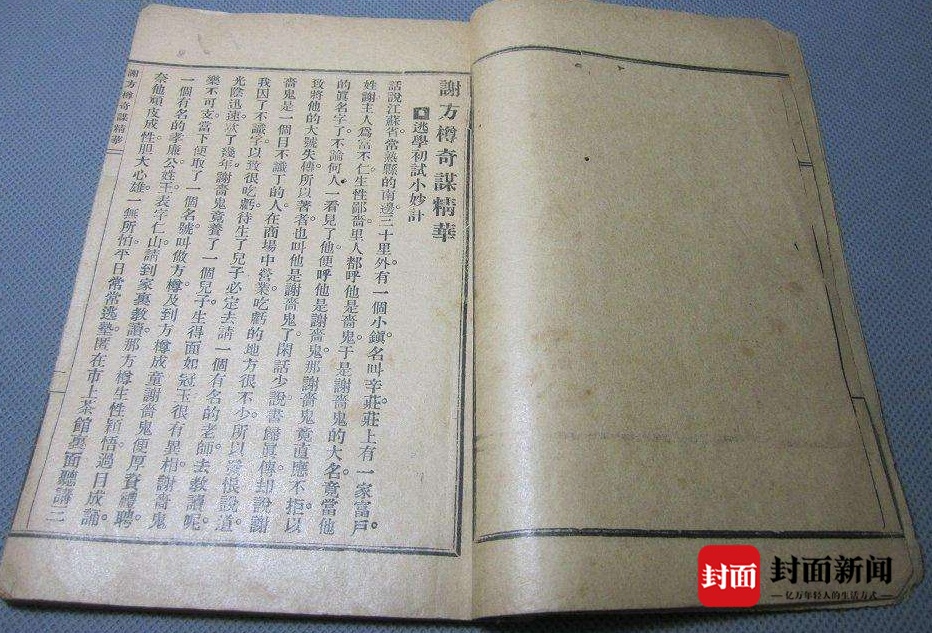 謝方樽奇謀精華
逃學初試小妙計
話說江蘇省常熟縣的南邊三十里外。有一個小鎮名叫辛莊。莊上有一家富戶。
姓謝。主人爲富不仁。生性鄙嗇。里人都呼他是嗇鬼。于是謝嗇鬼的大名。竟當他
的眞名字了。不論何人一看見了他。便呼他是謝嗇鬼。那謝嗇鬼竟直應不拒。以
致將他的大號失傳。所以著者也叫他是謝嗇鬼了。閑話少說。書歸眞傳。却說謝
嗇鬼是一個目不識丁的人。在商場中營業。吃虧的地方很不少。所以發恨說道。
我因了不識字。以致很吃虧。待生了兒子。必定去請一個有名的老師。去教讀呢。
光陰迅速。歇了幾年。謝嗇鬼竟養了一個兒子。生得面如冠玉。很有異相。謝嗇鬼
樂不可支。當下便取了一個名號。叫做方樽。及到方樽成童。謝嗇鬼便厚資禮聘
一個有名的孝廉公。姓王表字仁山。請到家裏教讀。那方樽生性穎悟。過目成誦。
奈他頑皮成性。胆大心雄。一無所怕。平日常常逃塾。匿在市上茶館裏面聽講三
謝方樽奇謀精華
封面
封面新闻
亿万年轻人的生活方式